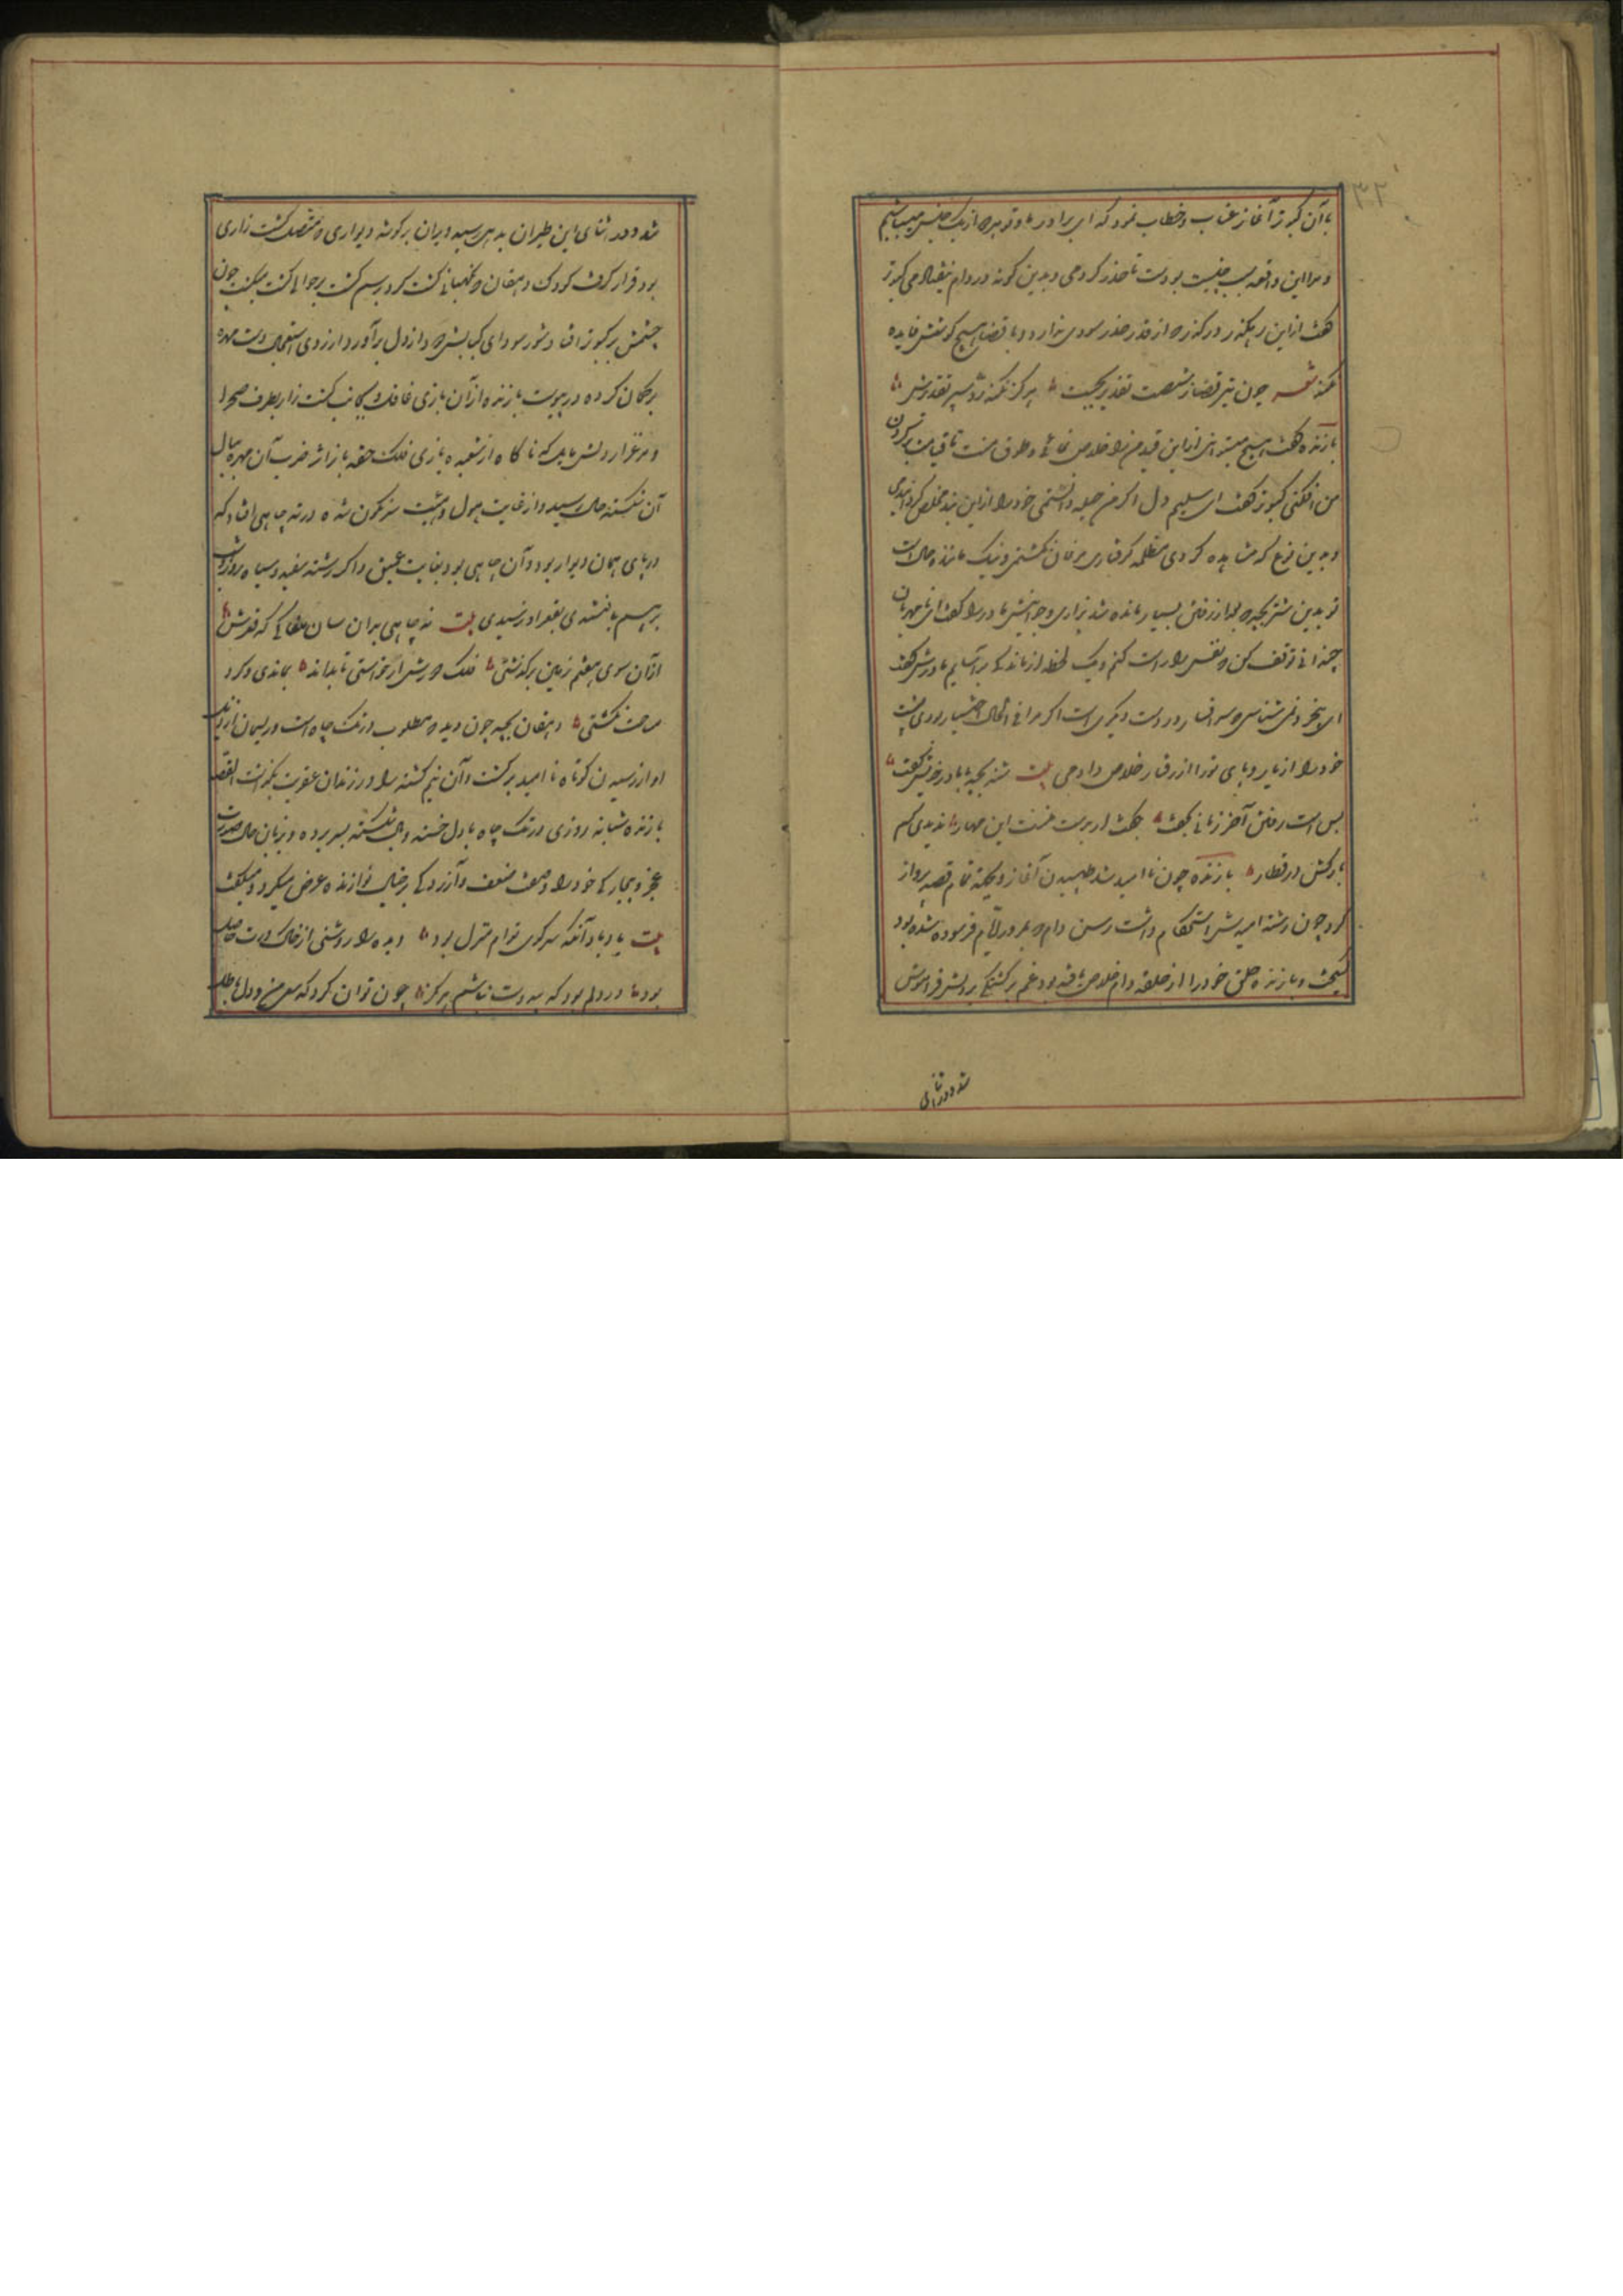 ۳۲
با آن کبوتر آغاز عتاب و خطاب نمود که ای برادر ما و تو هر از یک جنس میباشیم
و مرا این واقعه بسبب جنسیت بودت تا حذر کردمی و بدین گونه در دام نیفتادمی کبوتر
گفت ازین رهگذر درگذر که از قدر حذر سودی ندارد و با قضا هیچ کوشش فایده
نکند شعر چون تیر قضا ز شصت تقدیر بجست هرگز نکند سپر
بازنده گفت هیچ میتوانی ازین قید مرا خلاص نمائی و طوق منت تا قیامت بر گردن
من افکنی کبوتر گفت ای سلیم دل اگر من حیله دانستمی خود را ازین بند مخلص گردانیدمی
و بدین نوع که مشاهده کردی گرفتاری مرغان نگشتمی و نیک ماننده حال است
تو بدین شتر بچه که بعد از رفتن بسیار مانده شد بزاری مادر را گفت ای مهربان
چندانی توقف کن که نفس را راست کنم و یک لحظه از ماندگی برآسایم مادرش گفت
ای بیخرد نمی شناسی که سر افسار در دست دیگری است اگر مرا فی الحال اختیار بودی پشت
خود را از بار و پای تو را از رفتار خلاص دادمی بیت شتر بچه با مادر خویش گفت
بس است رفتن آخر زمانی بخفت بگفت ار بدست منستی این مهار ندیدی کسم
بارکش در قطار بازنده چون نا امید شد طپیدن آغاز و بجهد تمام قصد پرواز
کرد چون رشته امیدش استحکام داشت رسن دام که بمرور ایام فرسوده شده بود
بگسیخت و بازنده حلق خود را از حلقه دام خلاص یافته بود غم بر دلش فراموش
شد و در اثنای
شد و در اثنای این طیران به دهی رسید ویران بر گوشه دیواری که متصل کشت زاری
بود قرار گرفت کودک دهقان که نگهبانی کشت کردی برسم گشت بر حوالی کشت میگشت چون
چشمش بر کبوتر افتاد شور سودای کبابش دود از دل برآورد از روی استعجال دست مهره
بر کمان کرده در پیوست بازنده از آن بازی غافل بجانب کشت زار بطرف صحرا
و مرغزار دلش مایل که ناگاه از شعبده بازی فلک حقه باز اثر ضرب آن مهره ببال
آن شکسته حال رسید و از غایت هول و هیبت سرنگون شده در ته چاهی افتاد که
در پای همان دیوار بود و آن چاهی بود بغایت عمیق که اگر رشته سفید و سیاه روز و شب
بر هم بافتندی بقعر او نرسیدی بیت نه چاهی بدان سان مغاکی که قعرش
از آن سوی هفتم زمین برگذشتی فلک غورش ار خواستی تا بداند بماندی و گرد
مساحت نگشتی دهقان بچه چون دید که مطلوب در تگ چاه است و ریسمان تدبیر
او از رسیدن کوتاه نا امید برگشت و آن نیم کشته را در زندان عقوبت بگذاشت القصه
بازنده شبانه روزی در تگ چاه با دل خسته و بال شکسته بسر برده و بزبان حال صورت
عجز و بیچارگی خود را و صفت ضعف و آزردگی بر خیال نوازنده عرض میکرد و میگفت
بیت یاد باد آنکه سر کوی توام منزل بود دیده را روشنی از خاک درت حاصل
بود در دلم بود که بی دوست نباشم هرگز چون توان کرد که سعی من و دل باطل